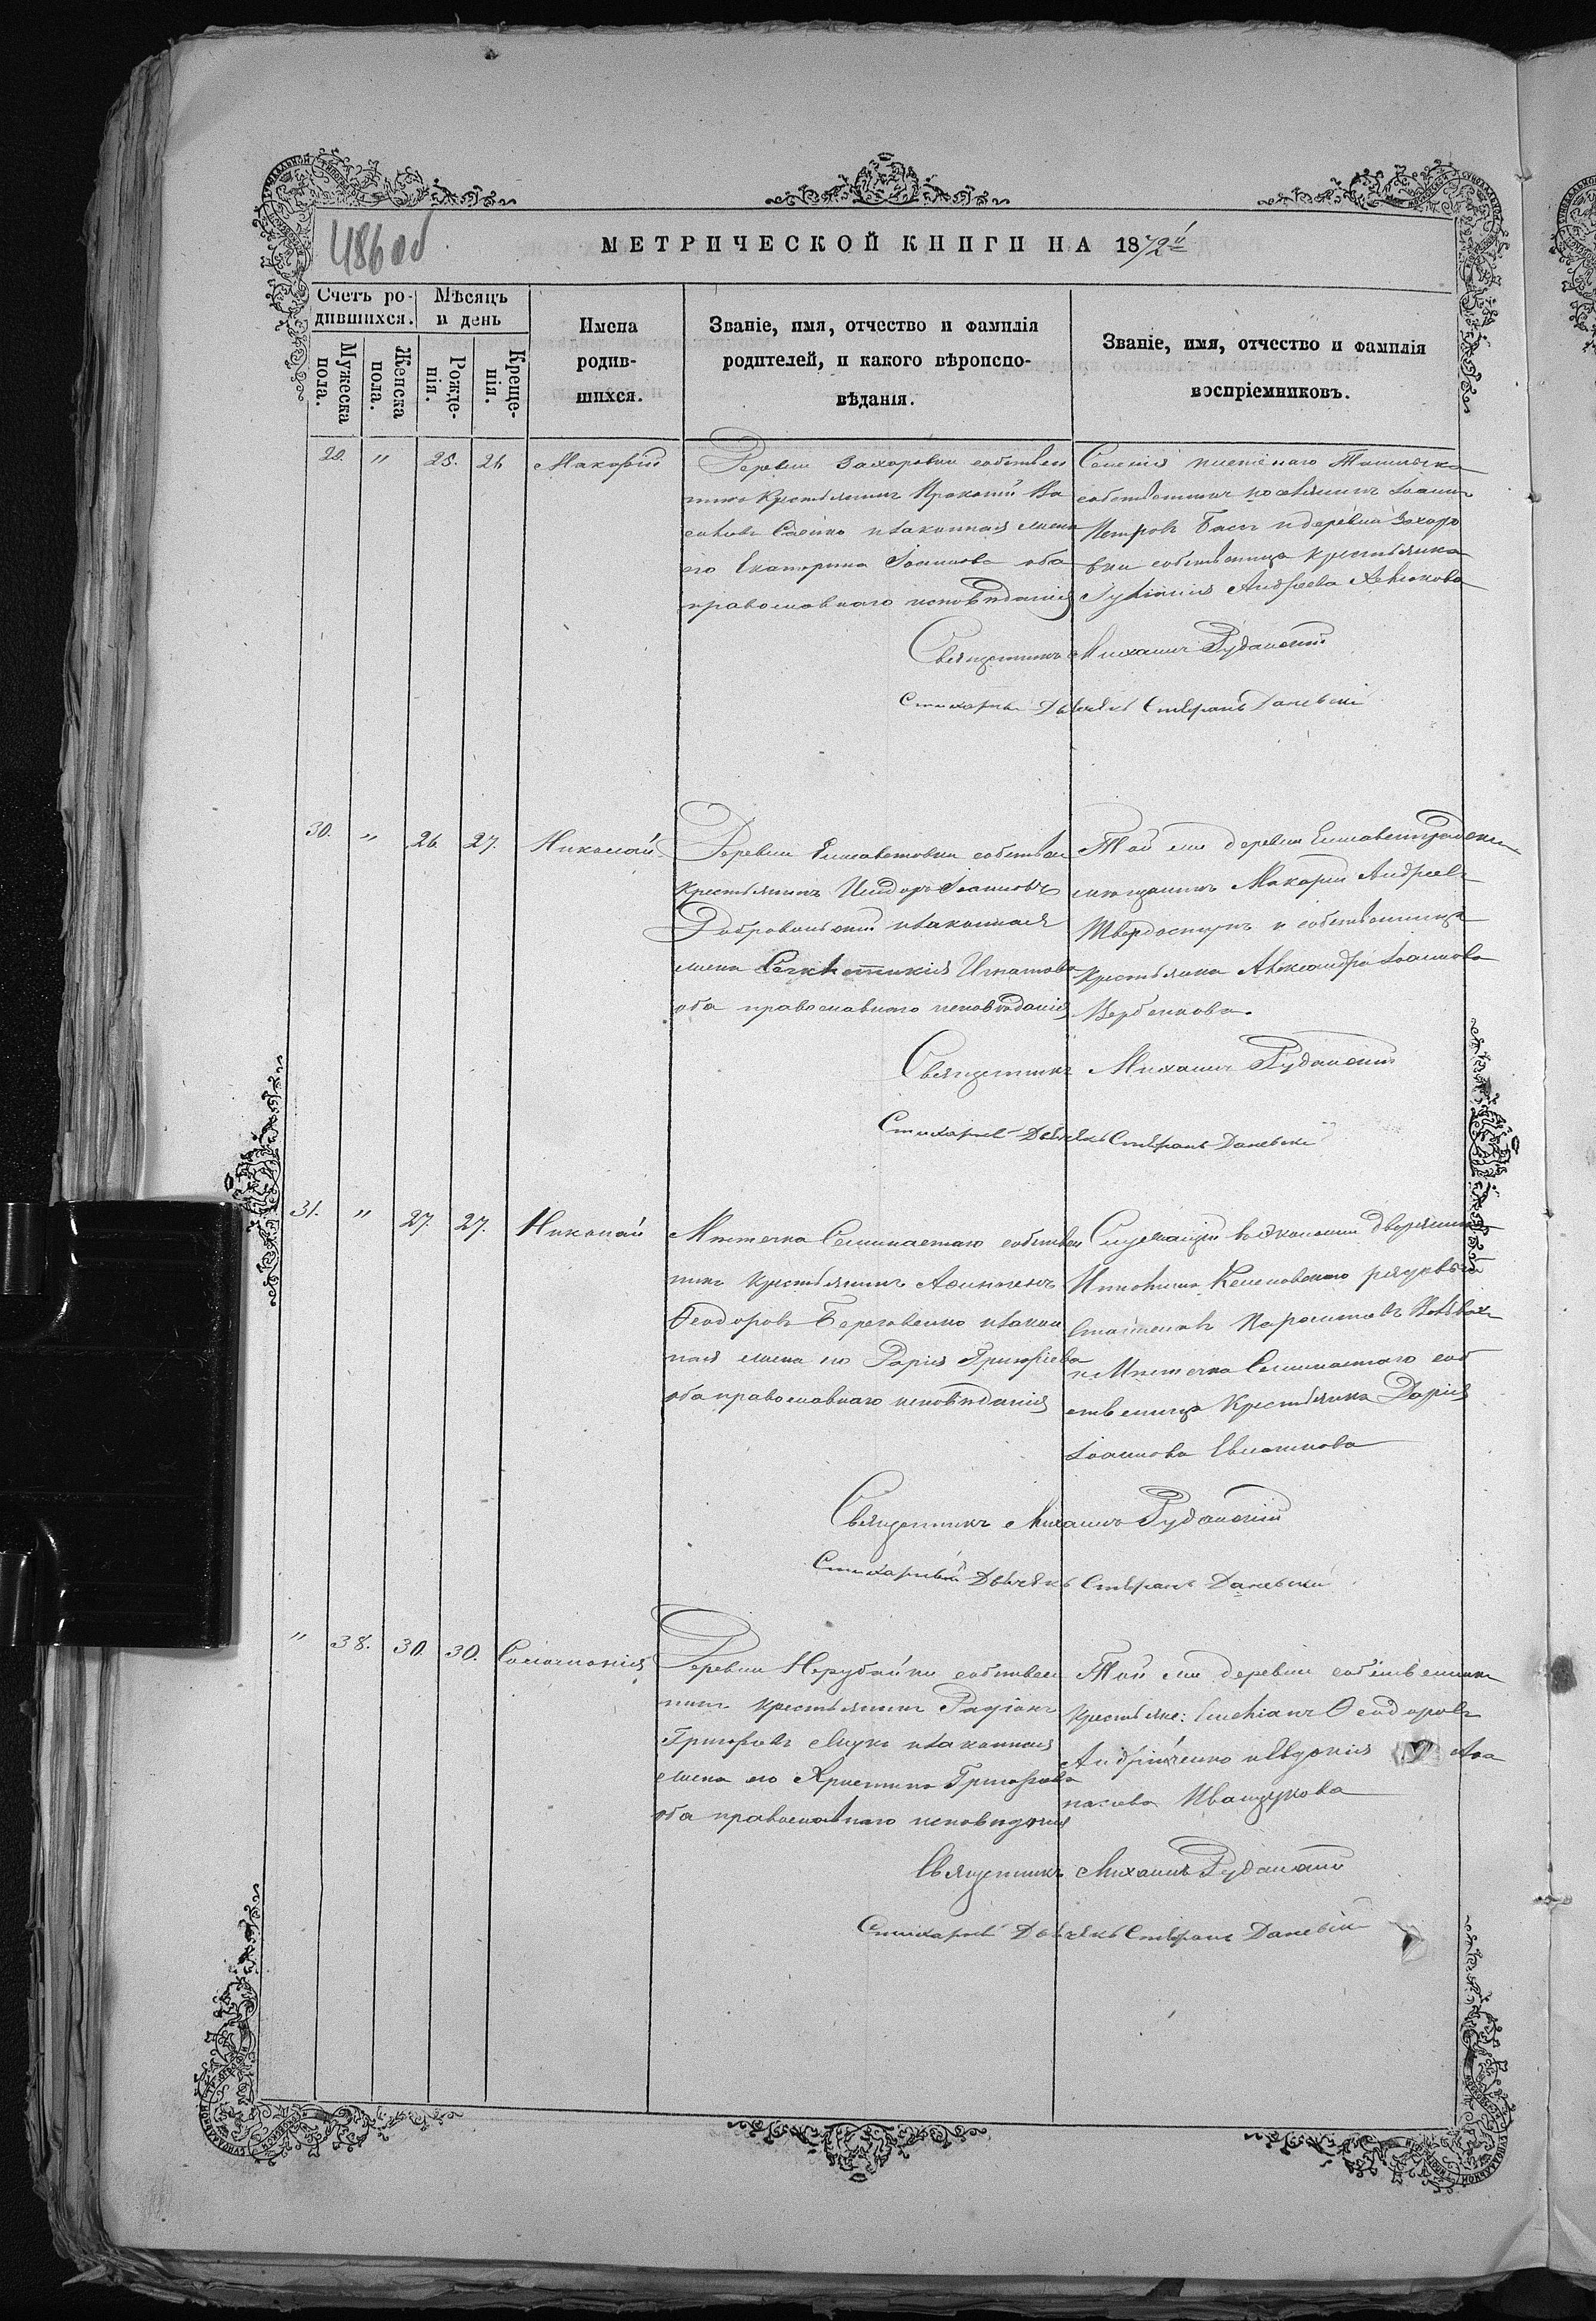 486 об
МЕТРИЧЕСКОЙ КНИГИ НА 1872й
Счетъ родившихся.
Мѣсяцъ и день
Мужеска пола.
Женска пола.
Рожденія.
Крещенія.
Имена родившихся.
Званіе, имя, отчество и фамилія родителей, и какого вѣроисповѣданія.
Званіе, имя, отчество и фамилія воспріемниковъ.
29. " 25. 26 Макарій
Деревни Захаровки собствен
никъ Крестьянинъ Прокопій Ва
и законная жена
его Екатерина Іоаннова оба
православнаго исповѣданія
Селенія
собственникъ поселянинъ Іоаннъ
Петровъ Басъ и деревни Захаро
вки собственница крестьянка
Андреева
Священникъ Михаилъ Руданскій
Стихарный Дьячекъ Стефанъ Даневскій
30. " 26 27. Николай
Деревни Елисаветовки собствен
крестьянинъ Исидоръ Іоанновъ
Добровольскій и законная
жена Игнатова
оба православнаго исповѣданія
Той же деревни Елисаветградскій
мещанинъ Макарій Андреевъ
и собственница
Крестьянка Александра Іоаннова
Вербенкова.
Священникъ Михаилъ Руданскій
Стихарный Дьячекъ Стефанъ Даневскій
31. " 27. 27. Николай
Мѣстечка Семинастаго собствен
никъ крестьянинъ Афиногенъ
Ѳеодоровъ Береговенко и закон
ная жена его Дарія Григоріева
оба православнаго исповѣданія
Служащій въ экономіи дворянинъ
и Мѣстечка Семинастаго соб
ственница Крестьянка Дарія
Іоаннова
Священникъ Михаилъ Руданскій
Стихарный Дьячекъ Стефанъ Даневскій
" 38. 30. 30. Соломонія
Деревни Нерубайки собствен
никъ крестьянинъ Родіонъ
Григорьевъ и законная
жена его Христина Григорьева
оба православнаго исповѣданія
Той же деревни собственники
Крестьяне: Емеліанъ Ѳеодоровъ
Андрійченко и Евдокія Аѳа
насіева Иващукова
Священникъ Михаилъ Руданскій
Стихарный Дьячекъ Стефанъ Даневскій